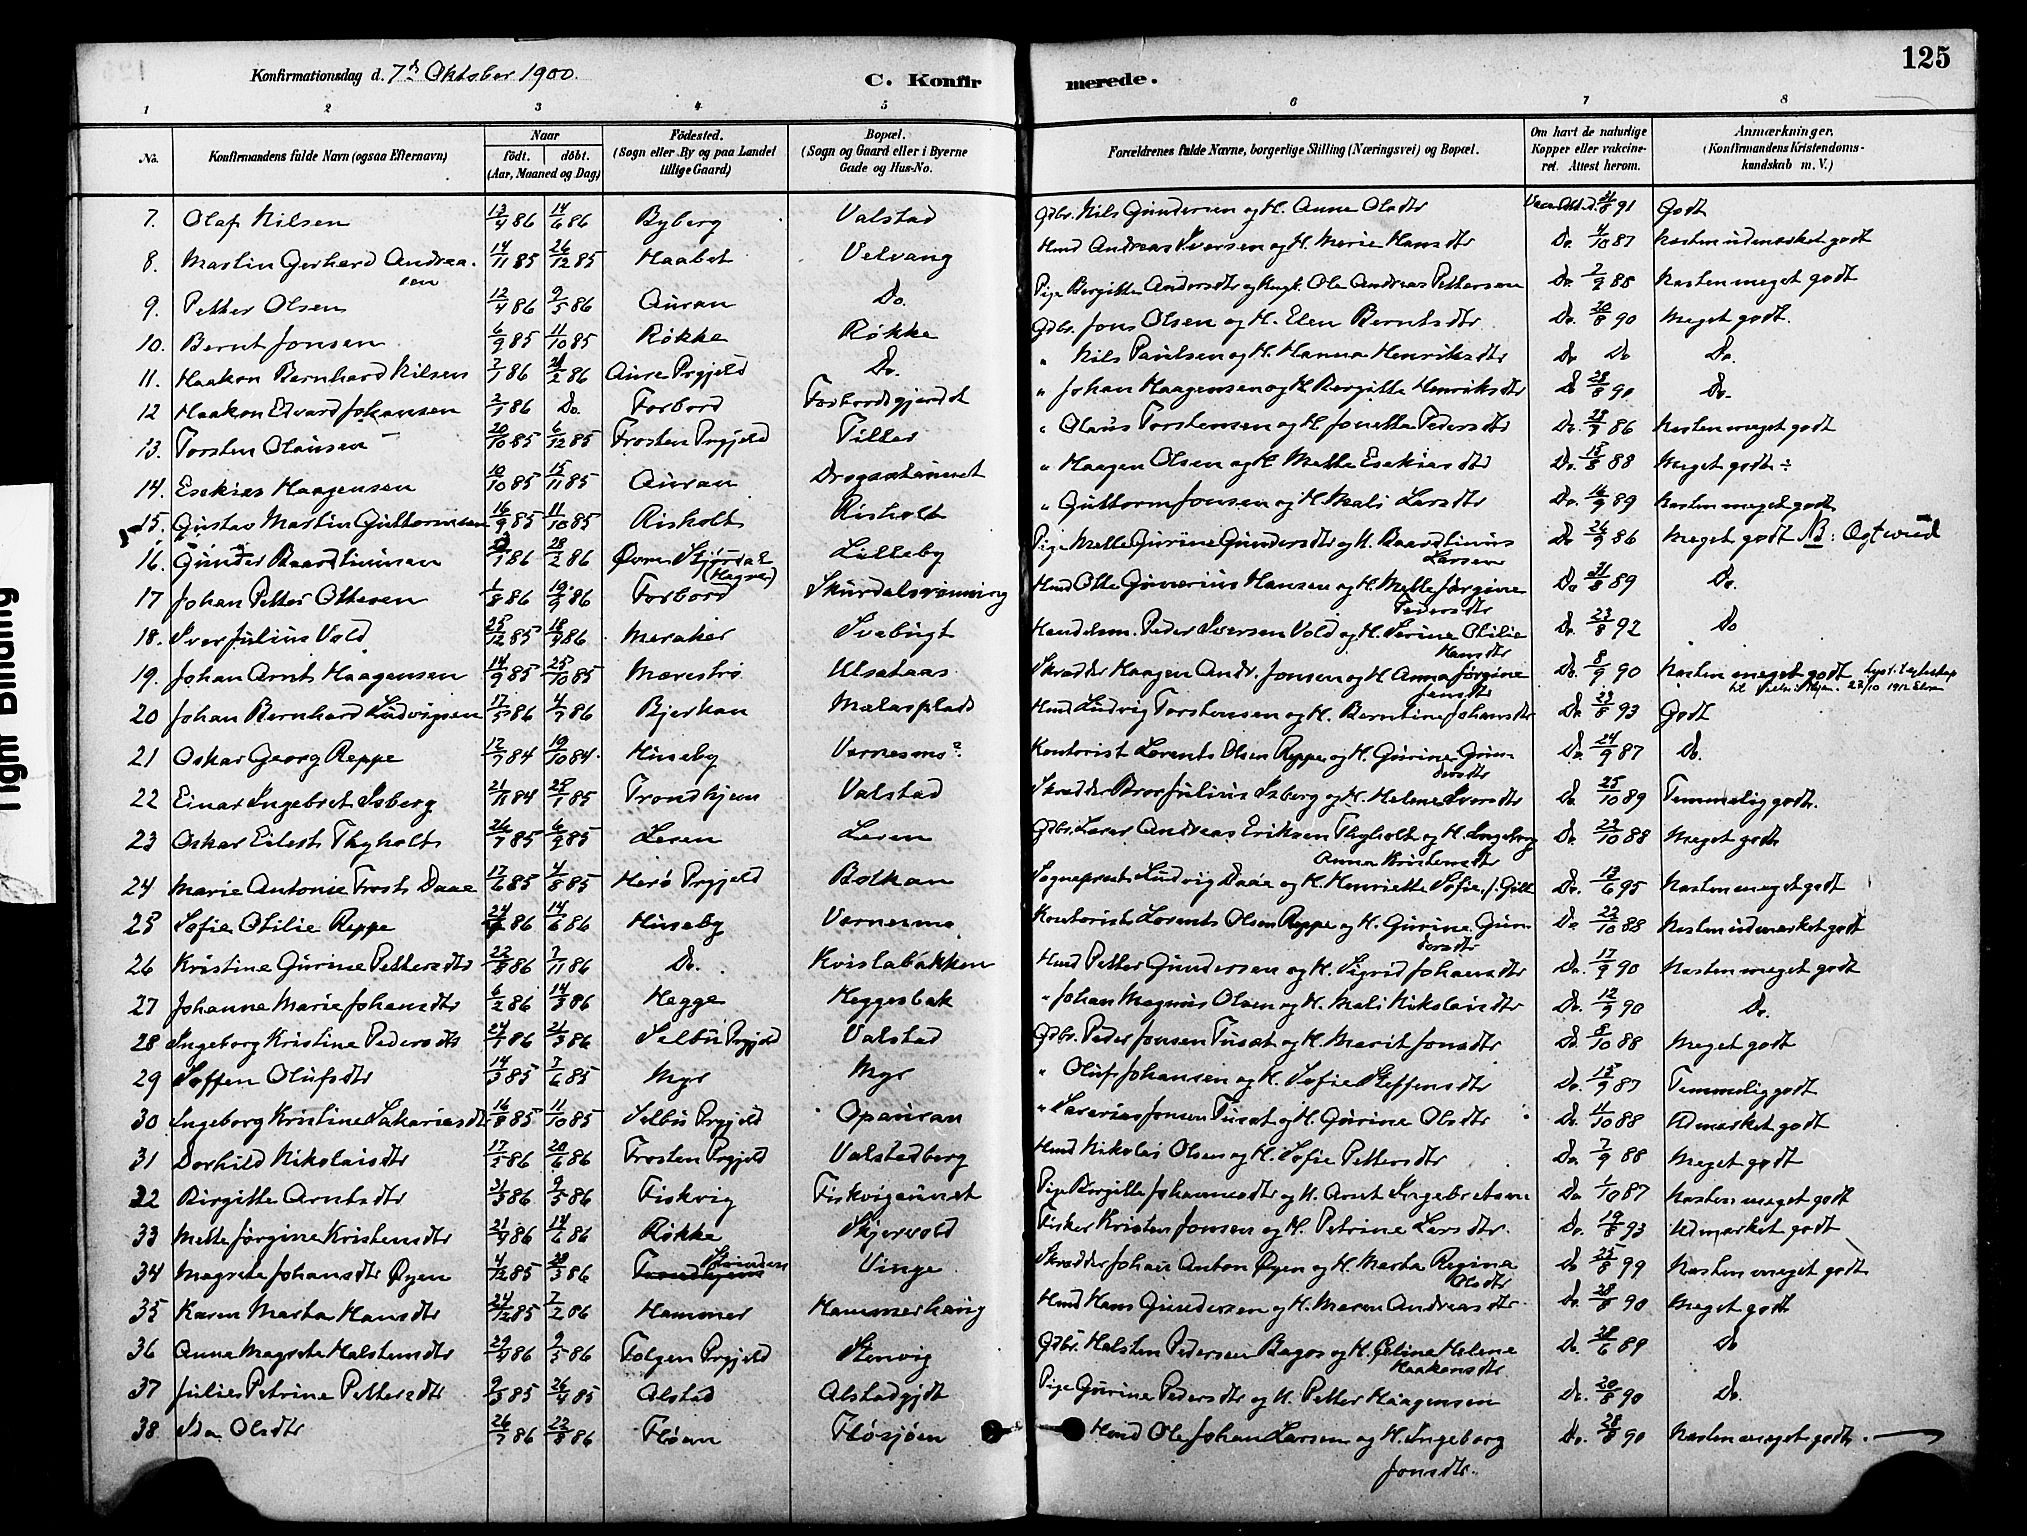 125
Konfirmationsdag d. 7de Oktober 1900.
C. Konfirmerede.
1 2 3 4 5 6 7 8
No. Konfirmandens fulde Navn (ogsaa Efternavn) Naar födt. döbt. (Aar, Maaned og Dag) Födested. (Sogn eller By og paa Landet tillige Gaard) Bopæl. (Sogn og Gaard eller i Byerne Gade og Hus-No. Forældrenes fulde Navne, borgerlige Stilling (Næringsvei) og Bopæl. Om havt de naturlige Kopper eller vakcineret. Attest herom. Anmærkninger. (Konfirmandens Kristendomskundskab m. V.)
7. Olaf Nilsen 13/4 86 14/6 86 Byberg Valstad Gdbr. Nils Gundersen og H. Anne Olsdtr 91 Godt
8. Martin Gerhard Andreasen 14/11 85 26/12 85 Haabet Velvang Hmd Andreas Iversen og H. Marie Hansdtr Do. 4/10 87 Næsten udmærket godt
9. Petter Olsen 12/4 86 9/5 86 Auran Do. Pige Bergitte Andersdtr og Ungk. Ole Andreas Pettersen Do. 7/9 88 Næsten meget godt
10. Bernt Jonsen 6/9 85 11/10 85 Røkke Røkke Gdbr. Jons Olsen og H. Elen Berntsdtr Do. 20/8 90 Meget godt.
11. Haakon Bernhard Nilsen 7/1 86 21/2 86 Aure Prgjeld Do. " Nils Paulsen og H. Hanna Henriksdtr Do Do Do.
12 Haakon Edvard Johansen 2/1 86 Do. Forbord Forbordsgjerdet " Johan Haagensen og H Bergitte Henriksdtr Do 28/8 90 Do.
13. Torsten Olausen 20/10 85 6/12 85 Frosten Prgjeld Tiller " Olaus Torstensen og H Jonetta Pedersdtr Do. 28/9 86 Næsten meget godt
14. Esekias Haagensen 10/10 85 15/11 85 Auran " Haagen Olsen og H Mette Esekiasdtr Do. 15/8 88 Meget godt ÷
15. Gustav Martin Guttormsen 16/9 85 11/10 85 Risholt Risholt " Guttorm Jonsen og H Mali Larsdtr Do. 16/9 89 Næsten meget godt
16. Gunder Baardtinusen 86 28/2 86 Øvre Stjørdal (Hegre) Lilleby Pige Mette Gurine Gundersdtr og K. Baardtinius Larsen Do 26/9 86 Meget godt NB:
17 Johan Petter Ottesen 1/8 86 19/9 86 Forbord Skurdalsrønning Hmd Otte Gunerius Hansen og H Mette Jørgine Pedersdtr Do 31/8 89 Do.
18. Iver Julius Vold 25/12 85 18/4 86 Meraker Svebugt Handelsm. Peder Iversen Vold og H. Serine Otilie Hansdtr Do. 23/8 92 Do
19. Johan Arnt Haagensen 14/9 85 25/10 85 Mærestrø Ulsetaas Skrædder Haagen Andr. Jonsen og H Anna Jørgine Jensdtr Do. 8/9 90 Næsten meget godt
20 Johan Bernhard Ludvigsen 17/5 86 4/7 86 Bjerkan Mælasplads Hmd Ludvig Torstensen og H. Berntine Johansdtr Do 23/8 93 Godt
21 Oskar Georg Reppe 12/7 84 19/10 84 Huseby Værnesmo Kontorist Lorents Olsen Reppe og H. Gurine Gundersdtr Do 24/9 87 Do.
22 Einar Ingebret Isberg 21/11 84 25/1 85 Trondhjem Valstad Skrædder Bror Julius Isberg og H. Helene Iversdtr Do. 25/10 89 Temmelig godt.
23 Oskar Eilest Thyholt 26/7 85 6/9 85 Leren Leren Gdbr. Lars Andreas Eriksen Thyholt og H. Ingeborg Anna Kristensdtr Do. 22/10 88 Meget godt
24 Marie Antonie Frost Daae 17/6 85 4/8 85 Herø Prgjeld Balkan Sogneprest Ludvig Daae og H. Henriette Sofie f. Do. 13/6 95 Næsten meget godt
25 Sofie Otilie Reppe 86 14/6 86 Huseby Værnesmo Kontorist Lorents Olsen Reppe og H. Gurine Gundersdtr Do 22/10 88 Næsten udmærket godt
26 Kristine Gurine Pettersdtr 22/8 86 7/11 86 Do. Kvislabakken Hmd Petter Gundersen og H. Sigrid Johansdtr Do. 17/9 90 Næsten meget godt
27 Johanne Marie Johansdtr 6/2 86 14/3 86 Hegge Heggesbak " Johan Magnus Olsen og H. Mali Nikolaisdtr Do. 12/9 90 Do.
28 Ingeborg Kristine Pedersdtr 24/1 86 21/3 86 Selbu Prgjeld Valstad Gdbr. Peder Jonsen Tuset og H. Marit Jonsdtr Do. 8/10 88 Meget godt
29 Steffen Olufsdtr 14/3 85 7/6 85 Myr Myr " Oluf Johansen og H. Sofie Steffensdtr Do. 15/9 87 Temmelig godt
30 Ingeborg Kristine Sakariasdtr 16/8 85 11/10 85 Selbu Prgjeld Opauran " Sakarias Jonsen Tuset og H. Gurine Olsdtr Do. 4/10 88 Udmærket godt
31 Dorhild Nikolaisdtr 17/2 86 20/6 86 Frosten Prgjeld Valstadberg Hmd Nikolai Olsen og H. Sofie Pettersdtr Do. 7/9 88 Meget godt
32 Birgitte Arntsdtr 31/3 86 9/5 86 Fiskvig Fiskvigaunet Pige Bergitte Johannesdtr og K. Arnt Ingebretsen Do 1/10 87 Næsten meget godt
33 Mette Jørgine Kristensdtr 21/4 86 14/6 86 Røkke Skjervold Fisker Kristen Jonsen og H. Petrine Larsdtr. Do. 19/8 93 Udmærket godt
34 Magrete Johansdtr Øyen 4/12 85 28/3 86 Trondhjem Strinden Vinge Skrædder Johan Anton Øyen og H. Marta Regine Olsdtr Do 25/8 99 Næsten meget godt
35 Karen Marta Hansdtr 24/12 85 7/2 86 Hammer Hammerhaug Hmd Hans Gundersen og H. Maren Andreasdtr. Do. 28/8 90 Meget godt
36 Anna Magrete Halstensdtr 29/4 86 9/5 86 Følgen Prgjeld Stenvig Gdbr. Halsten Pedersen Bagøs og H. Eline Helene Haakensdtr Do. 28/6 89 Do
37 Julie Petrine Pettersdtr 9/3 85 26/4 85 Alstad Alstadgjdt Pige Gurine Pedersdtr og K. Petter Haagensen Do. 20/8 90 Do.
38 Ida Olsdtr 26/7 86 22/8 86 Fløan Fløsjøen Hmd Ole Johan Larsen og H. Ingeborg Jonsdtr. Do. 28/8 90 Næsten meget godt.
Tight Binding